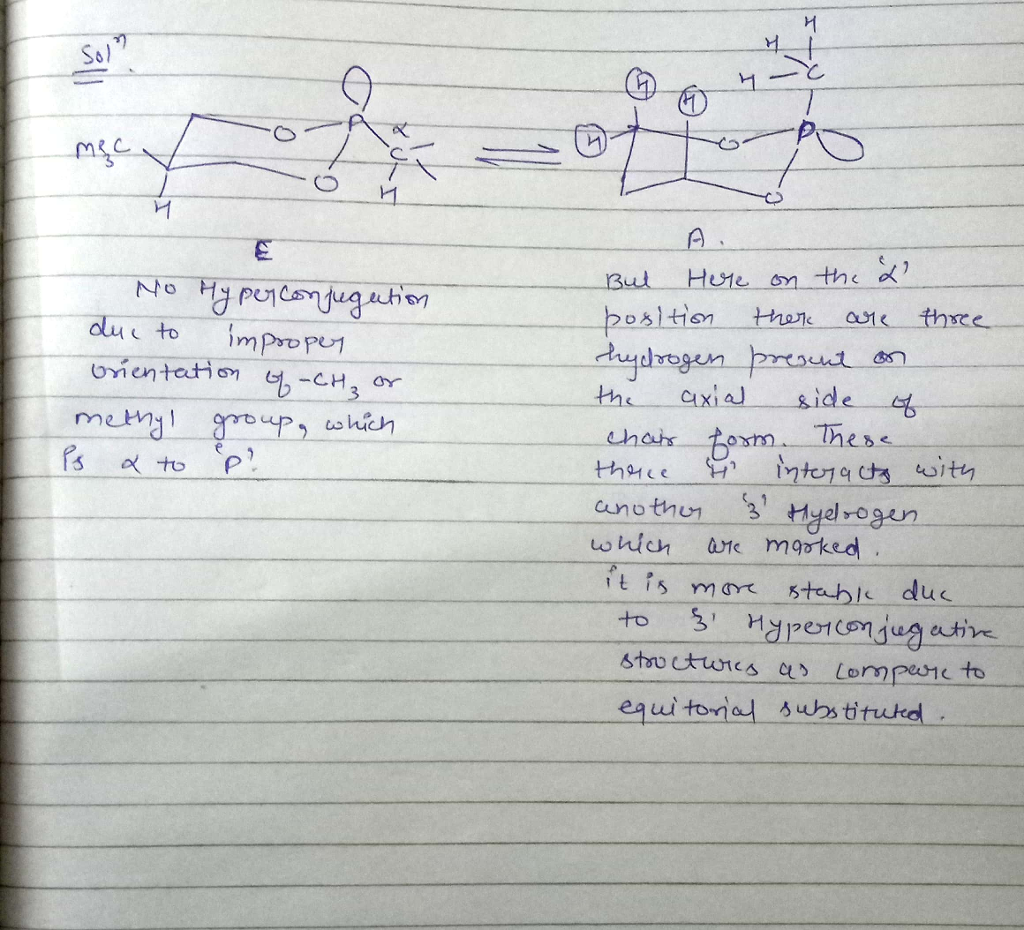 Solⁿ.
Me3C
H
O
O
P
α
C
H
E
No Hyperconjugation
due to improper
orientation of -CH3 or
methyl group, which
is α to 'P'.
H
H
H
C
H
H
H
O
P
O
A.
But Here on the 'α'
position there are three
hydrogen present on
the axial side of
chair form. These
three 'H' interacts with
another '3' Hydrogen
which are marked.
it is more stable due
to '3' Hyperconjugative
structures as compare to
equitorial substituted.